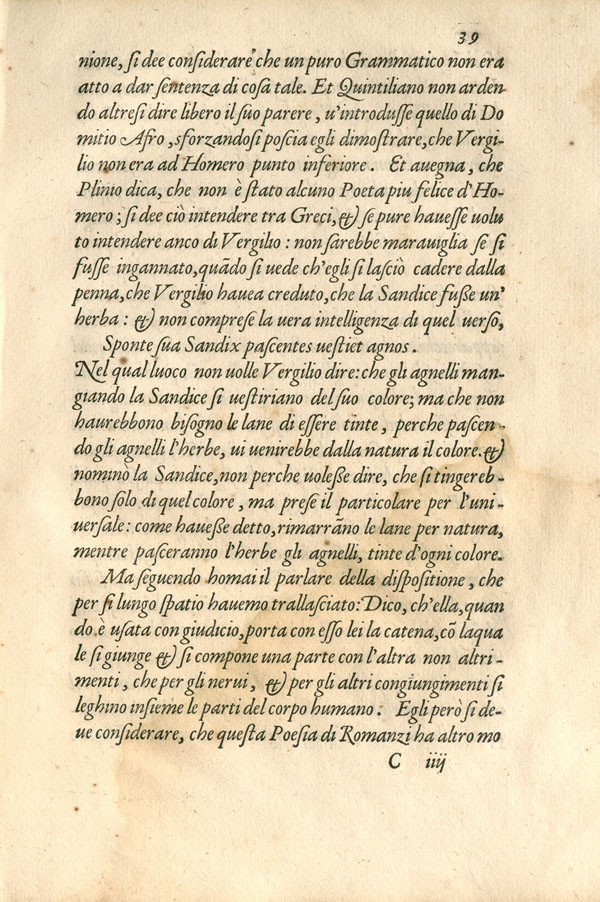 39
nione, si dee considerare che un puro Grammatico non era
atto a dar sentenza di cosa tale. Et Quintiliano non arden
do altresi dire libero il suo parere, u'introdusse quello di Do
mitio Afro, sforzandosi poscia egli dimostrare, che Vergi-
lio non era ad Homero punto inferiore. Et auegna, che
Plinio dica, che non è stato alcuno Poeta piu felice d'Ho-
mero; si dee ciò intendere tra Greci, & se pure hauesse uolu
to intendere anco di Vergilio: non sarebbe marauiglia se si
fusse ingannato, quãdo si uede ch'egli si lasciò cadere dalla
penna, che Vergilio hauea creduto, che la Sandice fuße un'
herba: & non comprese la uera intelligenza di quel uerso,
Sponte sua Sandix pascentes uestiet agnos.
Nel qual luoco non uolle Vergilio dire: che gli agnelli man-
giando la Sandice si uestiriano del suo colore; ma che non
haurebbono bisogno le lane di essere tinte, perche pascen-
do gli agnelli l'herbe, ui uenirebbe dalla natura il colore. &
nominò la Sandice, non perche uoleße dire, che si tingereb-
bono solo di quel colore, ma prese il particolare per l'uni-
uersale: come haueße detto, rimarrãno le lane per natura,
mentre pasceranno l'herbe gli agnelli, tinte d'ogni colore.
Ma seguendo homai il parlare della dispositione, che
per si lungo spatio hauemo trallasciato: Dico, ch'ella, quan
do è usata con giudicio, porta con esso lei la catena, cõ laqua
le si giunge & si compone una parte con l'altra non altri-
menti, che per gli nerui, & per gli altri congiungimenti si
leghino insieme le parti del corpo humano: Egli però si de-
ue considerare, che questa Poesia di Romanzi ha altro mo
C iiij